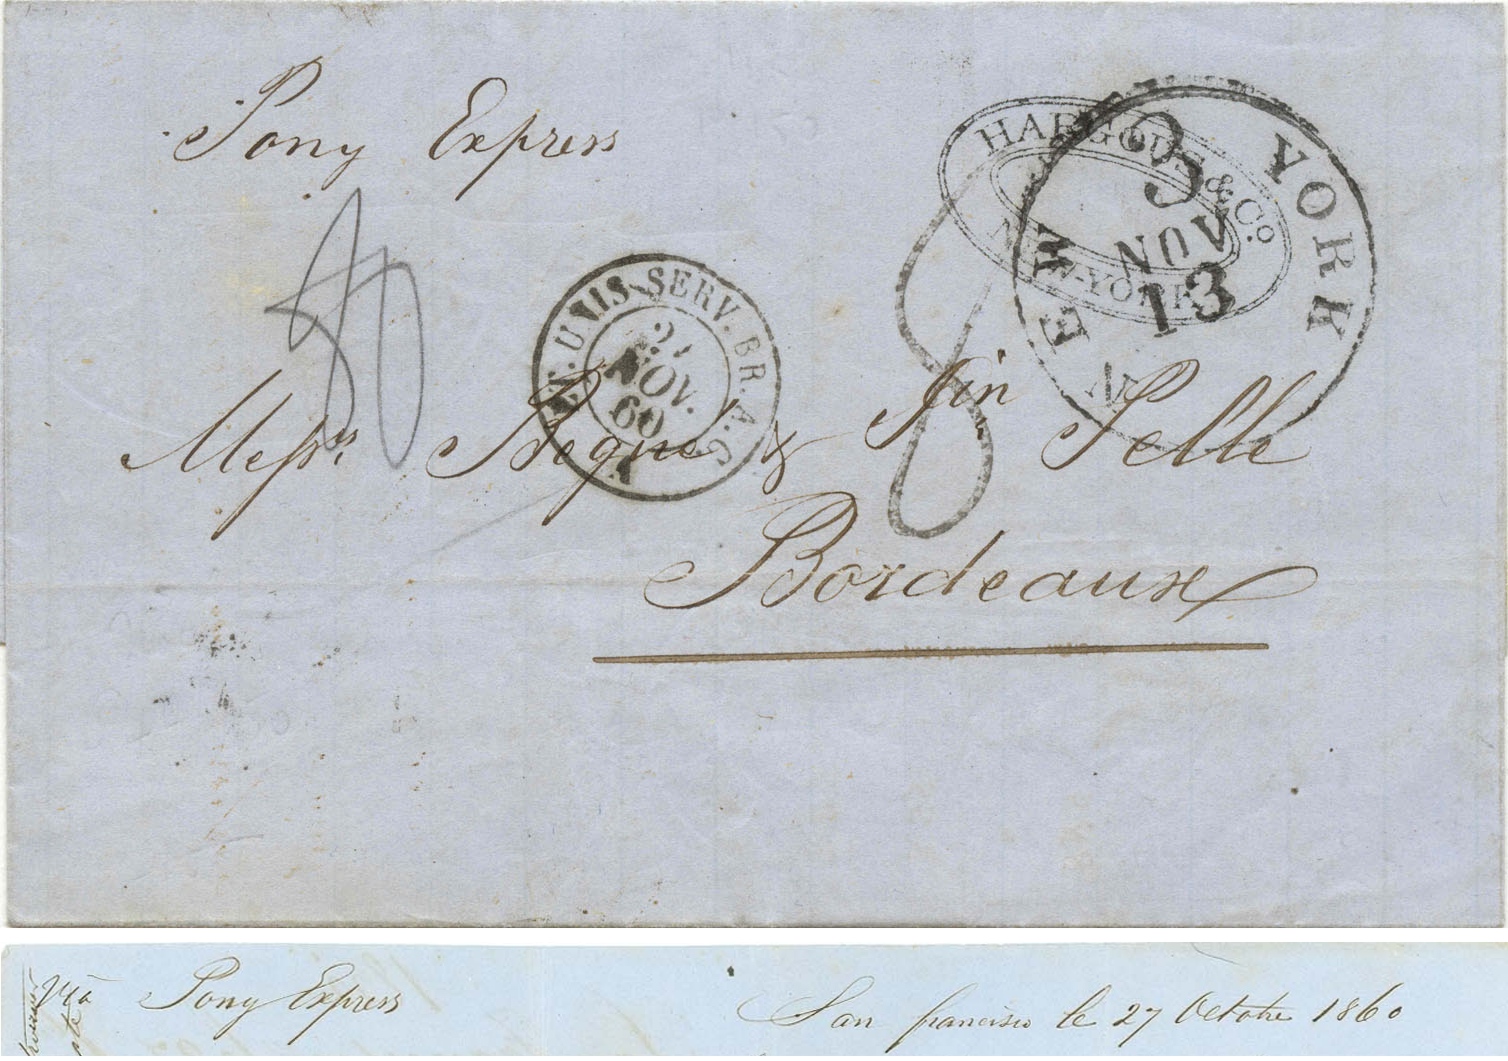 Pony Express
HARGOUS & Co.
NEW-YORK
NEW YORK
3
NOV
13
80
ET. UNIS SERV. BR. A.C.
NOV.
60
8
Messrs. Begué & jin Pellé
Bordeaux
Via Pony Express
San francisco le 27 Octobre 1860